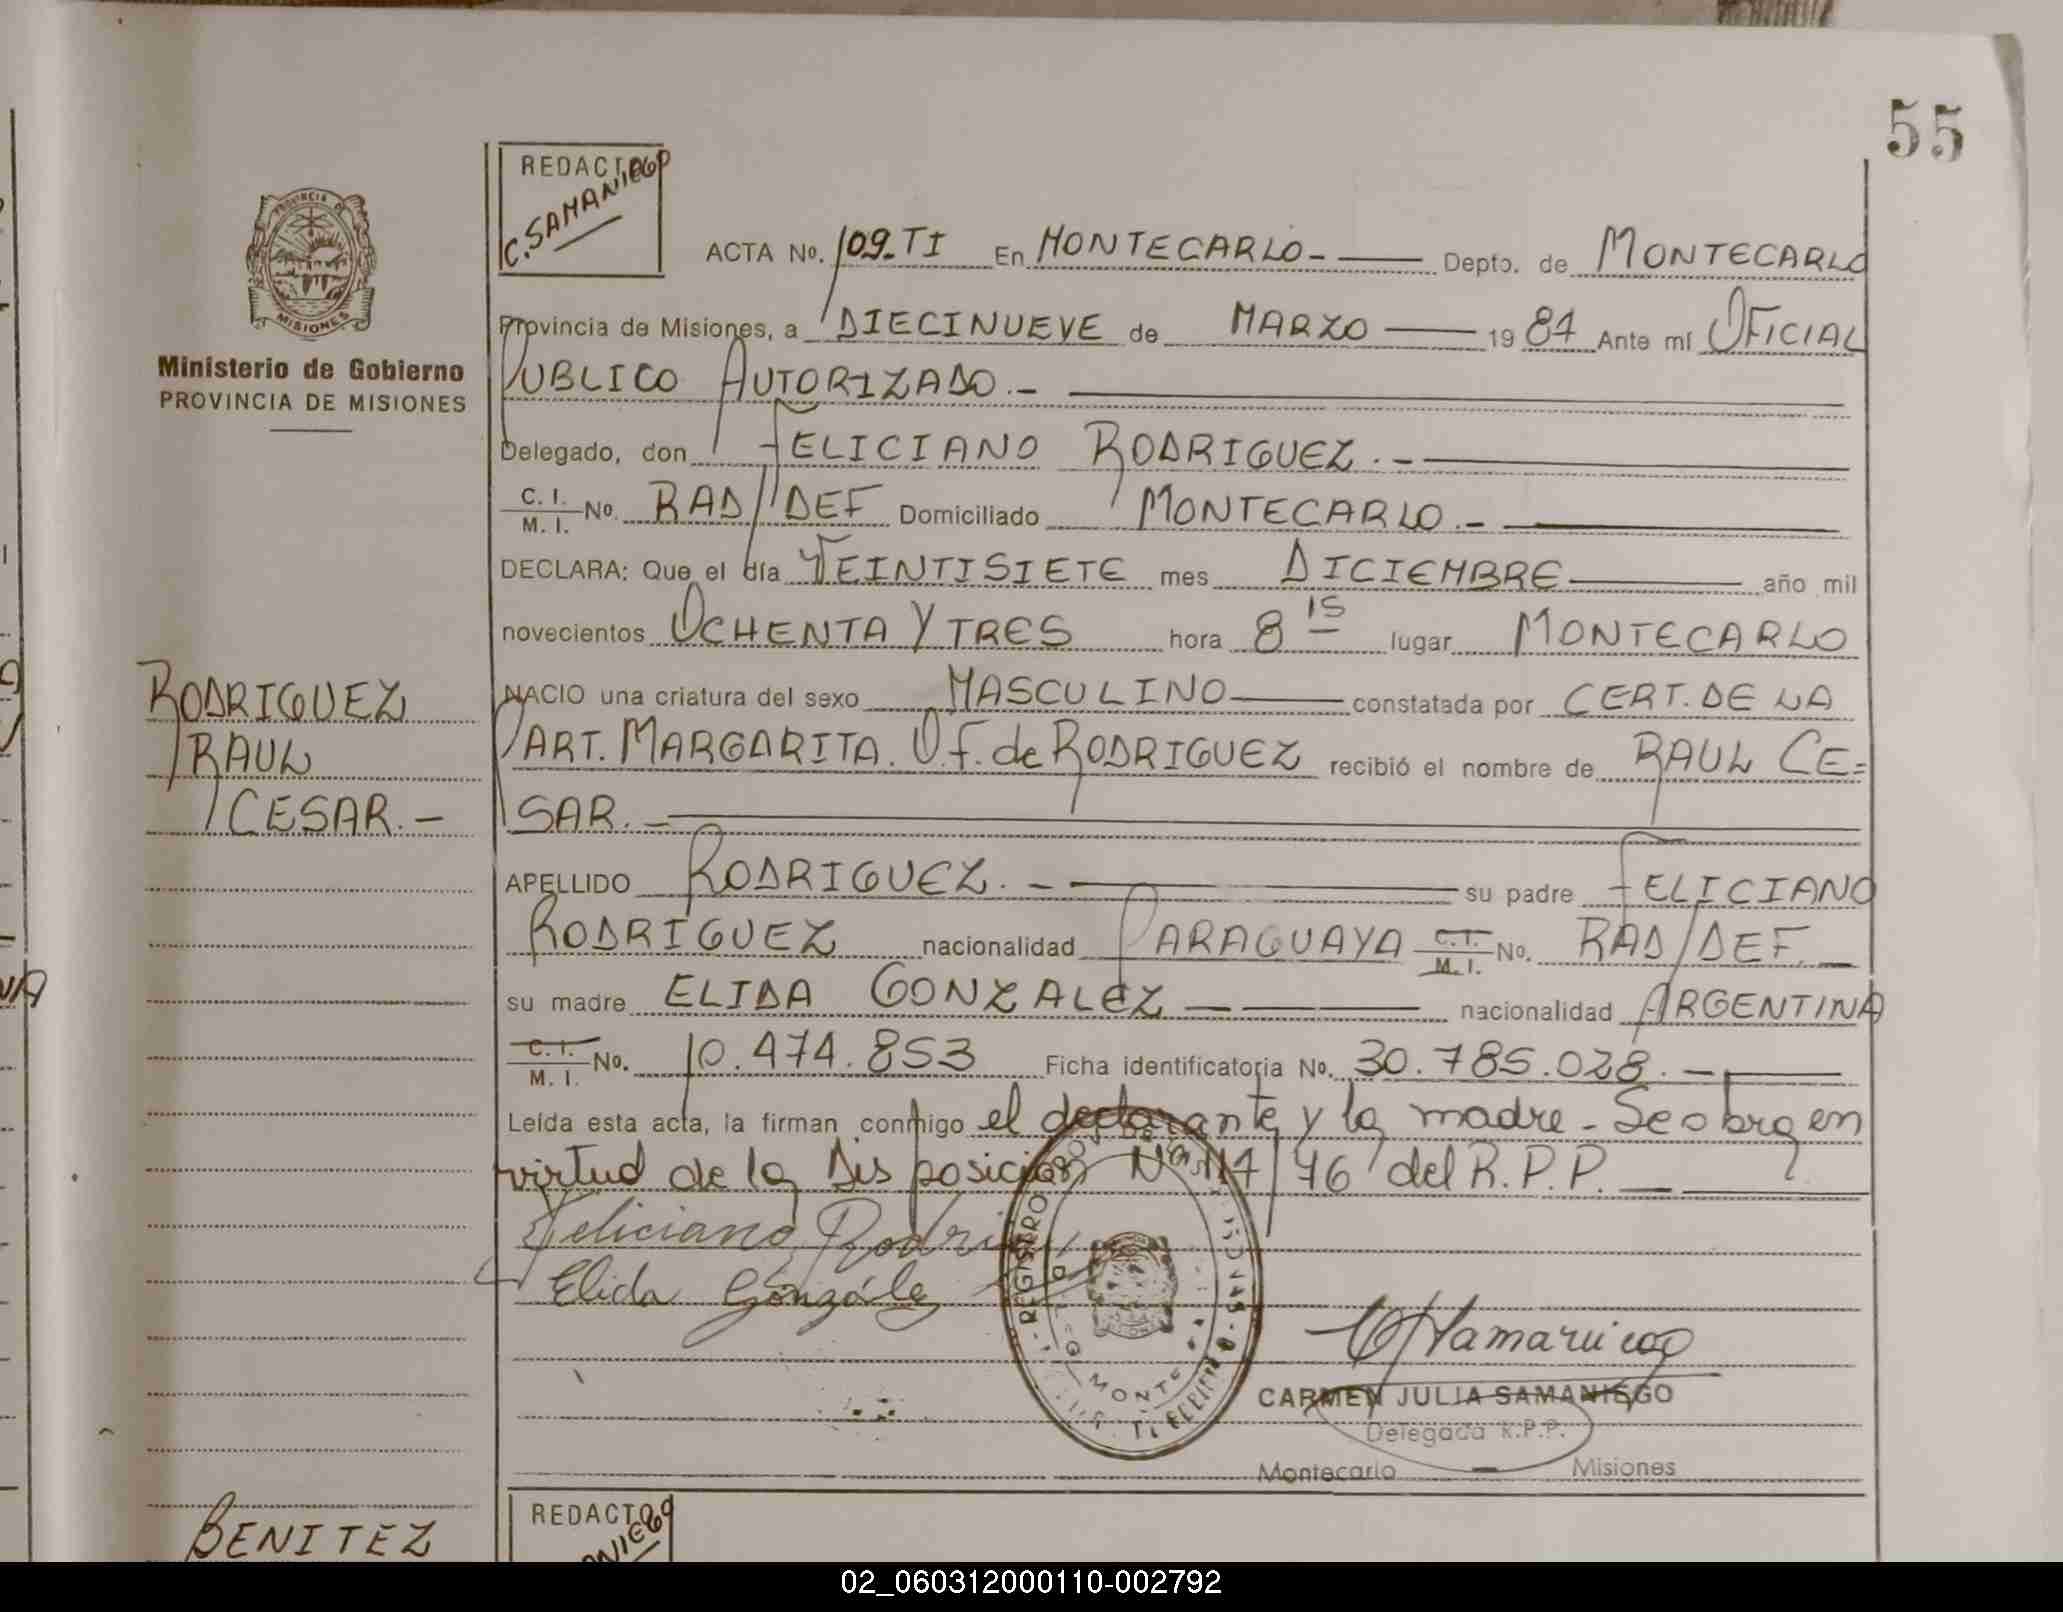 55
REDACTO
C. SAMANIEGO
PROVINCIA DE
MISIONES
Ministerio de Gobierno
PROVINCIA DE MISIONES
ACTA No. 109-TI En MONTECARLO.- Depto. de MONTECARLO
Provincia de Misiones, a DIECINUEVE de MARZO 19 84 Ante mí OFICIAL
PUBLICO AUTORIZADO.-
Delegado, don FELICIANO RODRIGUEZ.-
C. I. / M. I. No. RAD/DEF Domiciliado MONTECARLO.-
DECLARA: Que el día VEINTISIETE mes DICIEMBRE año mil
novecientos OCHENTA Y TRES hora 8 15 lugar MONTECARLO
NACIO una criatura del sexo MASCULINO constatada por CERT. DE LA
PART. MARGARITA. O. F. de RODRIGUEZ recibió el nombre de RAUL CE=
SAR.-
RODRIGUEZ
RAUL
CESAR.-
APELLIDO RODRIGUEZ.- su padre FELICIANO
RODRIGUEZ nacionalidad PARAGUAYA C. I. / M. I. No. RAD/DEF.-
su madre ELIDA GONZALEZ - nacionalidad ARGENTINA
C. I. / M. I. No. 10.474.853 Ficha identificatoria No. 30.785.028.-
Leída esta acta, la firman conmigo el declarante y la madre - Se obra en
virtud de la Disposición Nº 117/76 del R.P.P. -
Feliciano Rodri
Elida González
REGISTRO
MONTE
CARMEN JULIA SAMANIEGO
Delegada R.P.P.
Montecarlo - Misiones
BENITEZ
REDACTO
02_060312000110-002792